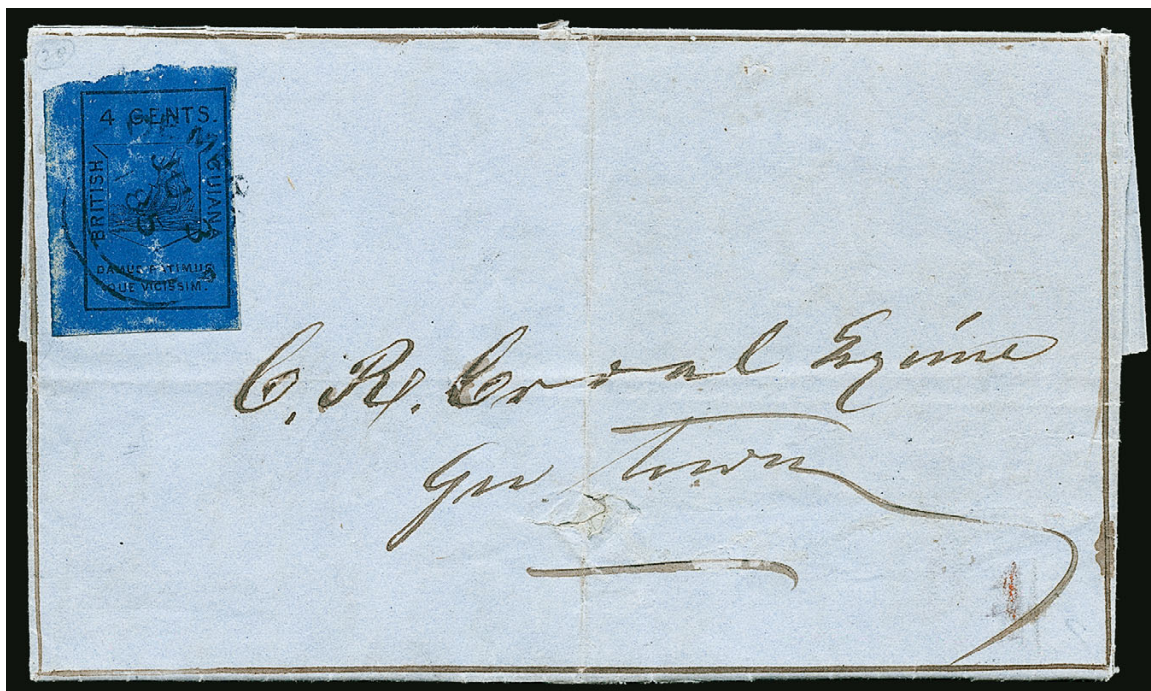 4 CENTS.
BRITISH
GUIANA
DAMUS PETIMUS
QUE VICISSIM.
C. R. Esquire
Geo Town